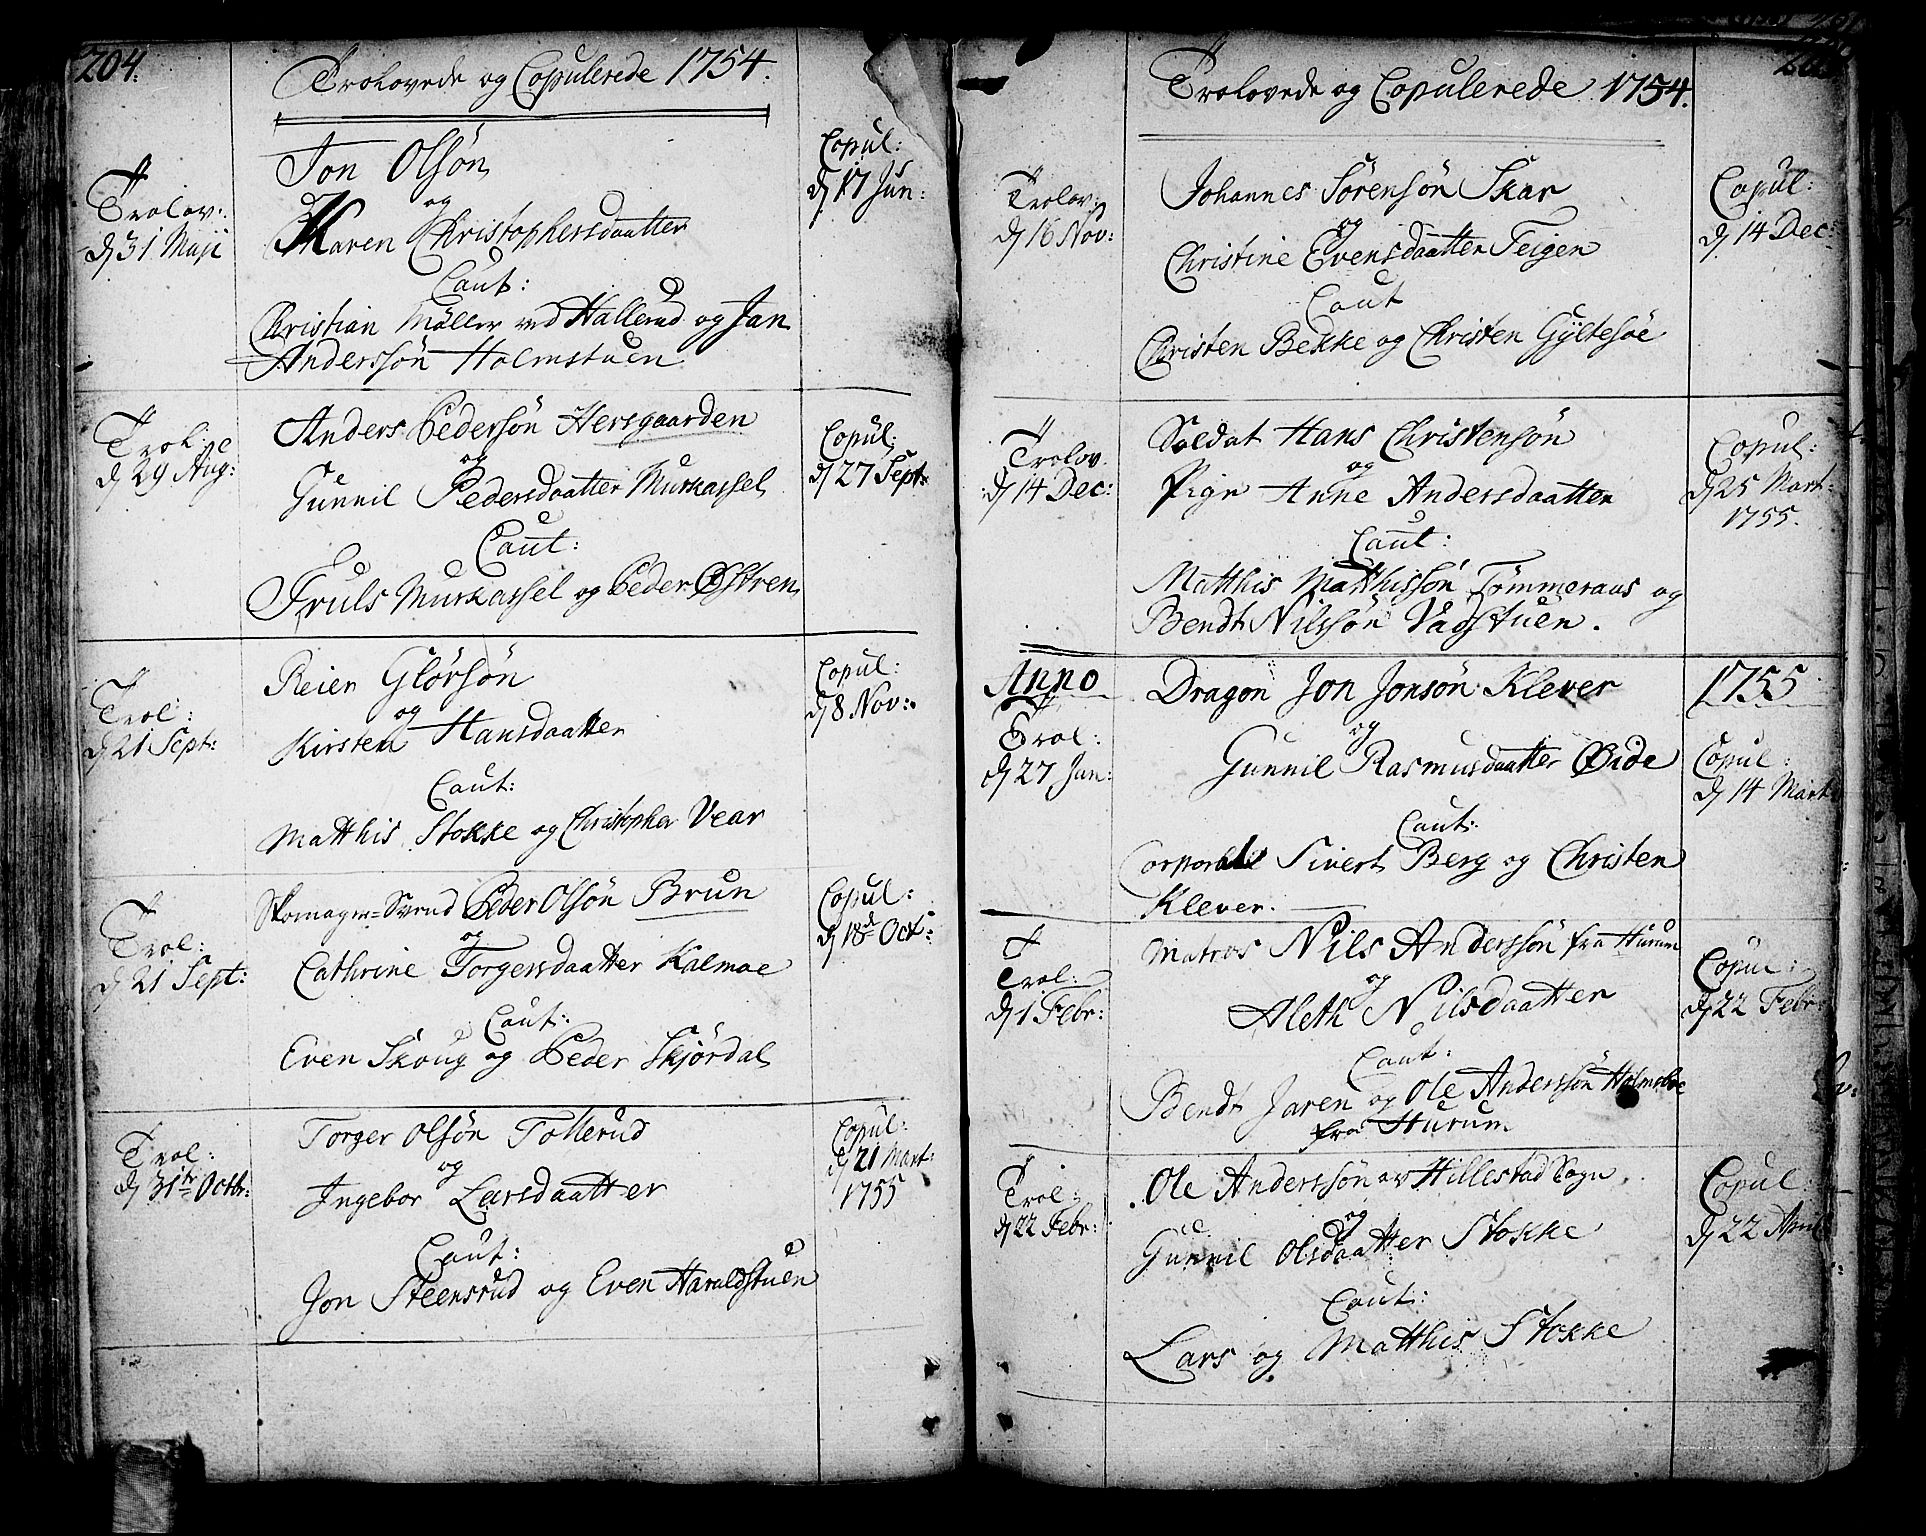 204.
Trolovede og Copulerede 1754.
Trolov:
d 31 Maji
Jon Olsøn
og
Karen Christophersdaatter
Caut:
Christian Møller ved Hallerud og Jan
Anderssøn Holmstuen
Copul:
d 17 Jun:
Trol:
d 29 Aug:
Anders Pedersøn Hersgaarden
og
Gunnil Pedersdaatter Murkassel
Caut:
Truls Murkassel og Peder Østren
Copul:
d 27 Sept:
Trol:
d 21 Sept:
Reier Glørsøn
og
Kirsten Hansdaatter
Caut:
Matthis Stokke og Christopher Vear
Copul:
d 8 Nov:
Trol:
d 21 Sept:
Skomager=Svend Peder Olsøn Brun
og
Cathrine Torgersdaatter Kalmoe
Caut:
Even Skoug og Peder Skjørdal
Copul:
d 18d Oct:
Trol:
d 31tr Octbr:
Torger Olsøn Tollerud
og
Ingebor Larsdaatter
Caut:
Jon Steensrud og Even Haraldstuen
Copul:
d 21 Mart:
1755
Trolovede og Copulerede 1754.
Trolov:
d 16 Nov:
Johannes Sørensøn Skar
og
Christine Evensdaatter Teigen
Caut
Christen Bekke og Christen Gÿltesøe
Copul:
d 14 Dec:
Trolov.
d 14 Dec:
Soldat Hans Christensøn
og
Pige Anne Andersdaatter
Caut:
Matthis Matthissøn Tømmeraas og
Bendt Nilssøn Vadstuen.
Copul:
d 25 Mart:
1755.
Anno
1755
Trol:
d 27 Jan:
Dragon Jon Jonsøn Klever
og
Gunnil Rasmusdaatter Øide
Caut:
Corporal Sivert Berg og Christen
Klever.
Copul:
d 14 Mart
Trol:
d 1 Febr:
Matros Nils Anderssøn fra Hurum
og
Aleth Nilsdaatter
Caut:
Bendt Jaren og Ole Anderssøn Holmsboe
fra Hurum
Copul:
d 22 Febr:
Trol:
d 22 Febr:
Ole Anderssøn av Hillestad Sogn
og
Gunnil Olsdaatter Stokke
Caut:
Lars og Matthis Stokke
Copul:
d 22 April